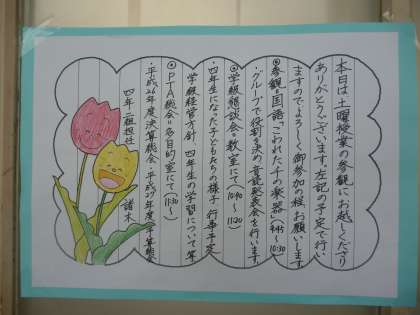 本日は土曜授業の参観にお越しくださり
ありがとうございます。左記の予定で行い
ますのでよろしく御参加の程、お願いします。
◎参観 国語「こわれた千の楽器」(9:45〜10:30)
・グループで役割を決め、音読発表会を行います。
◎学級懇談会 教室にて(10:40〜11:20)
・四年生になった子どもたちの様子 行事予定
学級経営方針 四年生の学習について 等
◎PTA総会 多目的室にて(11:30〜)
・平成26年度決算総会・平成27年度予算総会
四年二組担任 諸木